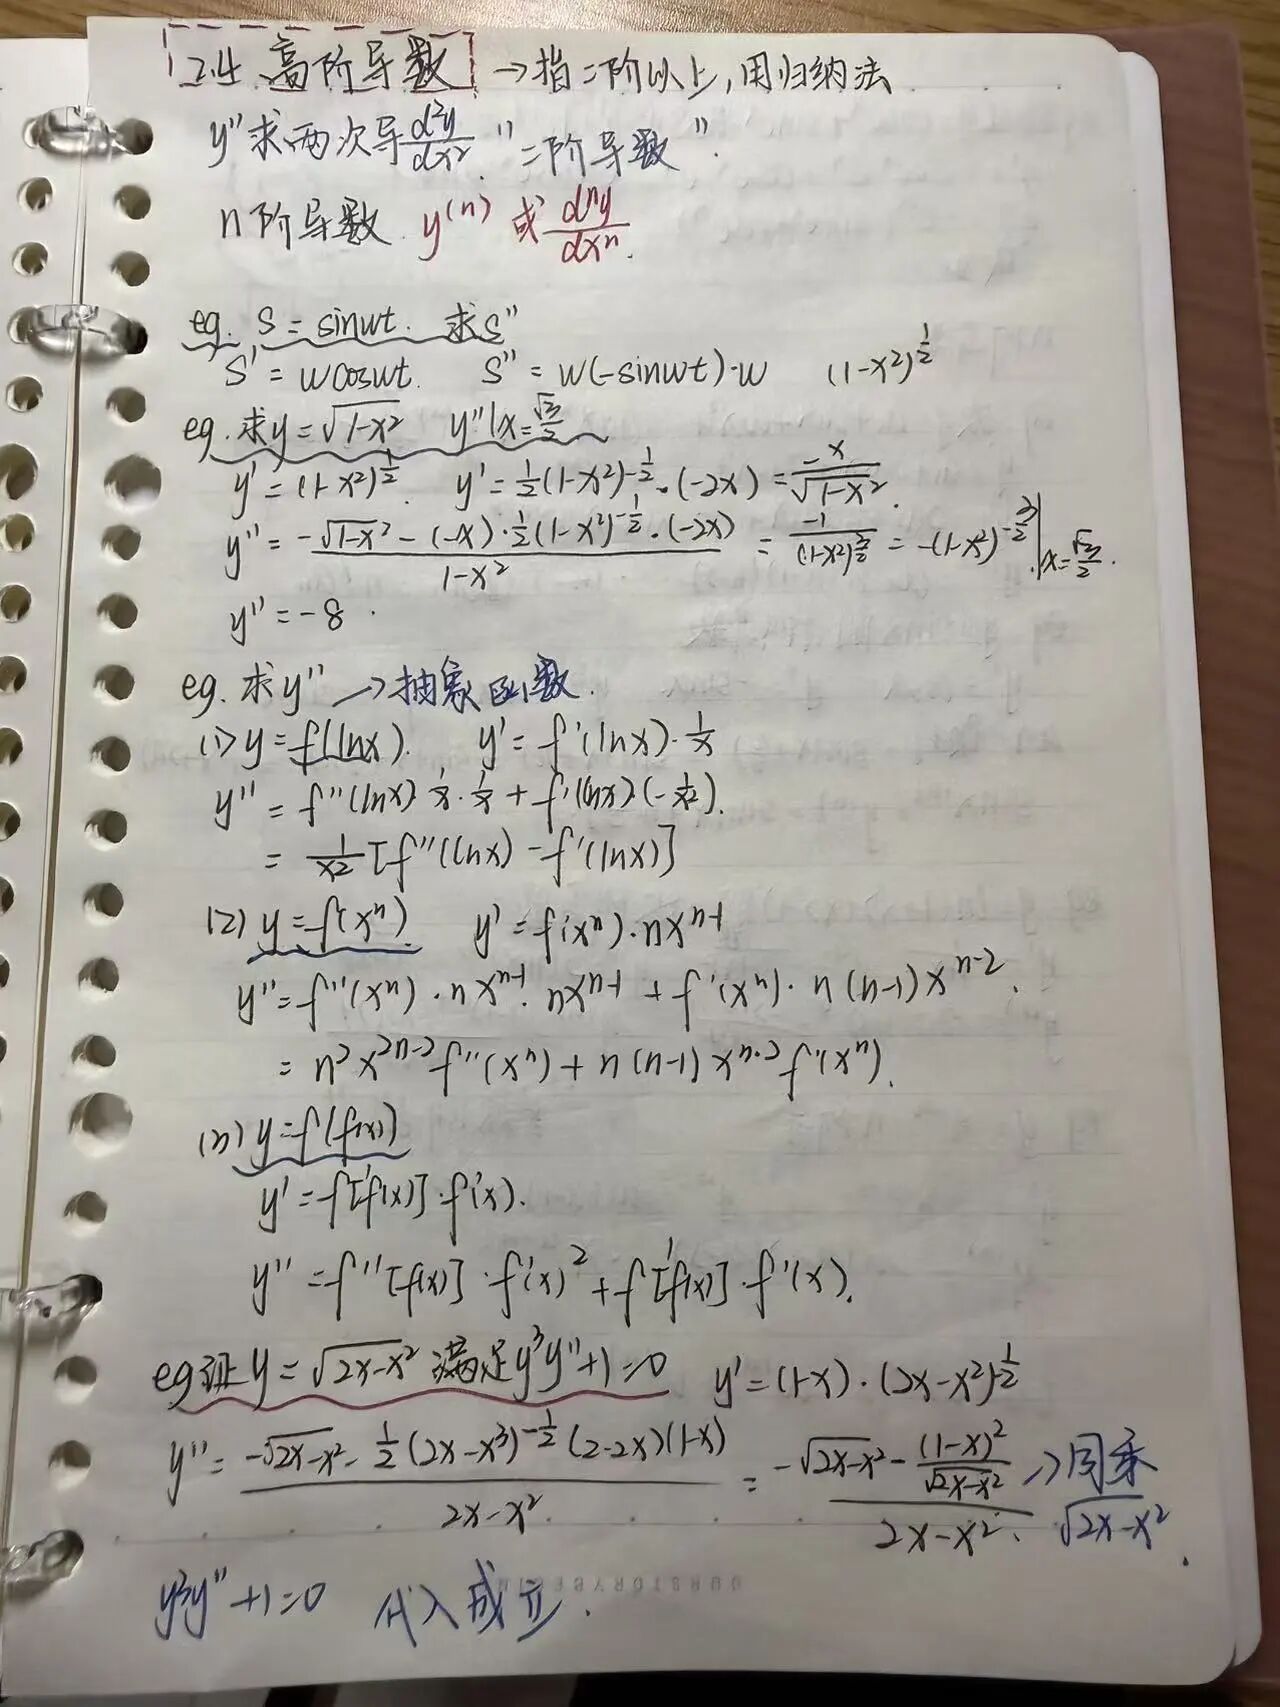 2.4 高阶导数 →指二阶以上,用归纳法
y''求两次导 d²y/dx² "二阶导数"
n阶导数 y⁽ⁿ⁾ 或 dⁿy/dxⁿ.
eg. S = sinwt. 求s''
S' = wcoswt. S'' = w(-sinwt)·w (1-x²)^(1/2)
eg.求y=√(1-x²) y''|x=√3/2
y'=(1-x²)^(1/2). y'=1/2(1-x²)^(-1/2)·(-2x)=-x/√(1-x²).
y''=(-√(1-x²)-(-x)·1/2(1-x²)^(-1/2)·(-2x))/(1-x²) = -1/(1-x²)^(3/2) = -(1-x²)^(-3/2)|x=√3/2.
y''=-8.
eg.求y'' →抽象函数.
(1) y=f(lnx). y'=f'(lnx)·1/x
y''=f''(lnx)·1/x·1/x+f'(lnx)(-1/x²).
=1/x²[f''(lnx)-f'(lnx)]
(2) y=f(xⁿ). y'=f'(xⁿ)·nxⁿ⁻¹
y''=f''(xⁿ)·nxⁿ⁻¹·nxⁿ⁻¹+f'(xⁿ)·n(n-1)xⁿ⁻².
=n²x²ⁿ⁻²f''(xⁿ)+n(n-1)xⁿ⁻²f'(xⁿ).
(3) y=f(f(x))
y'=f'[f(x)]·f'(x).
y''=f''[f(x)]·f'(x)²+f'[f(x)]·f''(x).
eg证y=√(2x-x²) 满足y³y''+1=0 y'=(1-x)·(2x-x²)^(-1/2)
y''=(-√(2x-x²)-1/2(2x-x³)^(-1/2)(2-2x)(1-x))/(2x-x²) = (-√(2x-x²)-(1-x)²/√(2x-x²))/(2x-x²). →同乘
√(2x-x²).
y³y''+1=0 代入成立.